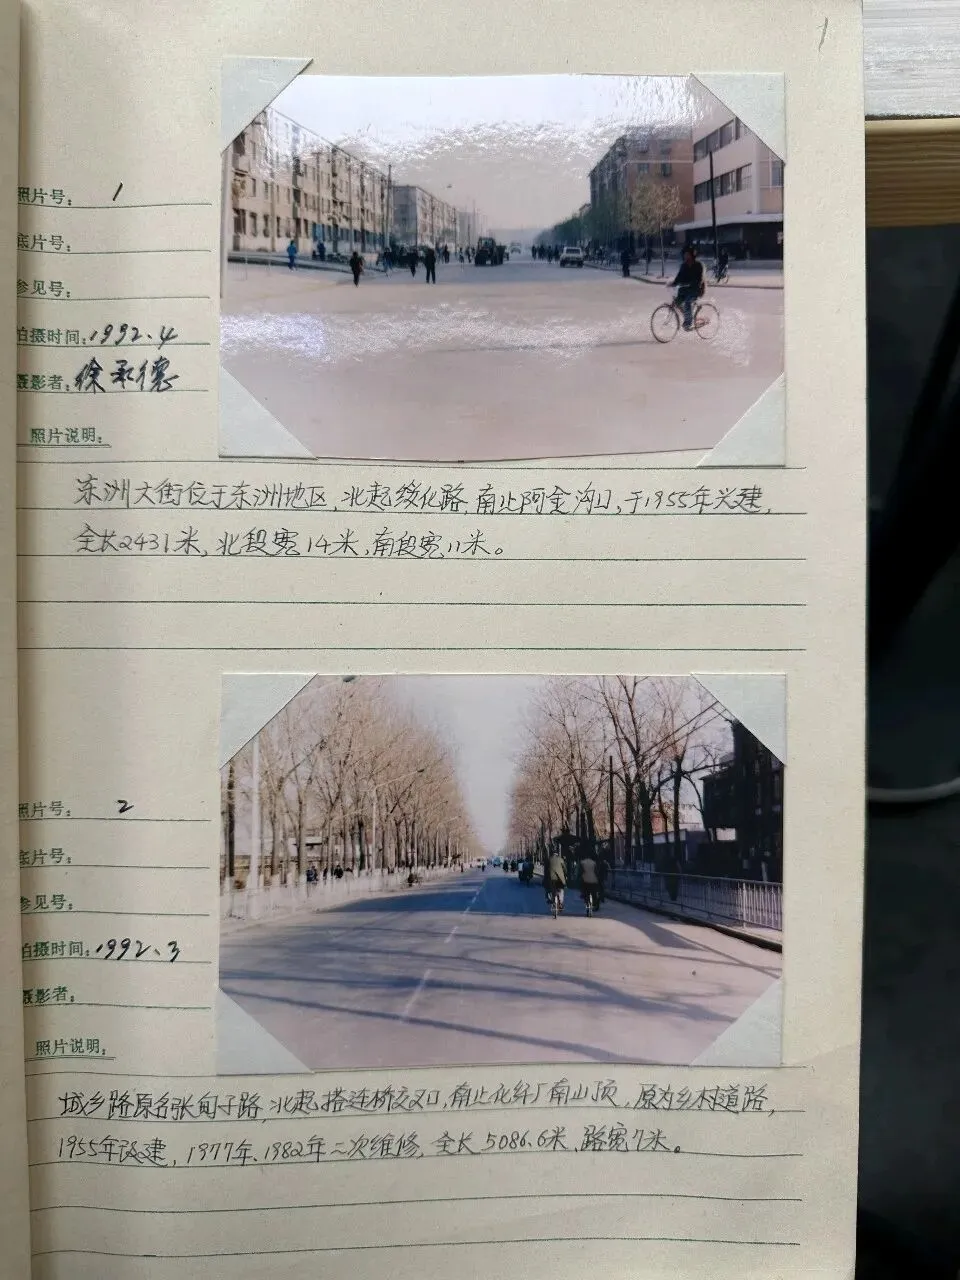 1
照片号: 1
底片号:
参见号:
拍摄时间: 1992、4
摄影者: 徐承德
照片说明:
东洲大街位于东洲地区,北起绥化路,南止阿金沟口,于1955年兴建,
全长2431米,北段宽14米,南段宽11米。
照片号: 2
底片号:
参见号:
拍摄时间: 1992、3
摄影者:
照片说明:
城乡路原名张甸子路,北起搭连桥交叉口,南止化纤厂南山顶,原为乡村道路,
1955年改建,1977年、1982年二次维修,全长5086.6米,路宽7米。